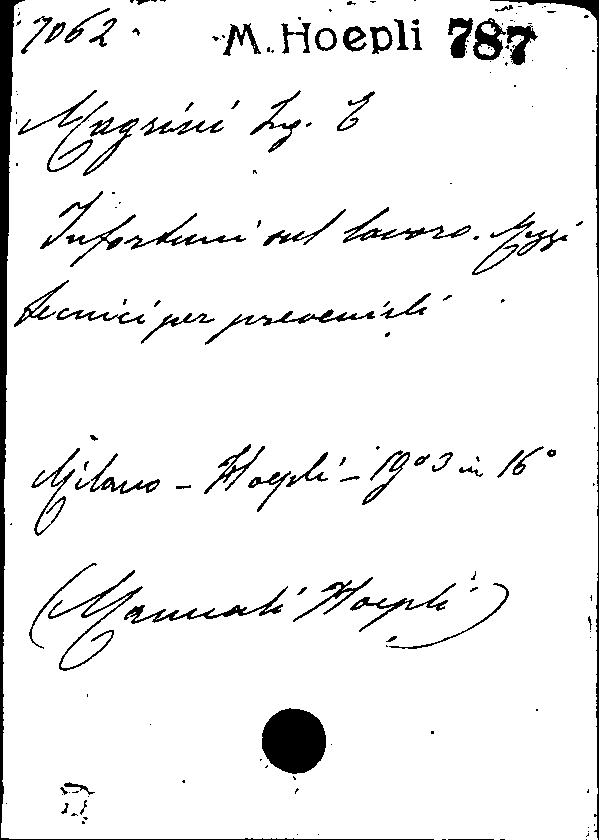 7062
M. Hoepli 787
Magrini Ing. E
Infortuni sul lavoro. Mezzi
tecnici per prevenirli
Milano - Hoepli - 1903 in 16°
(Manuali Hoepli)